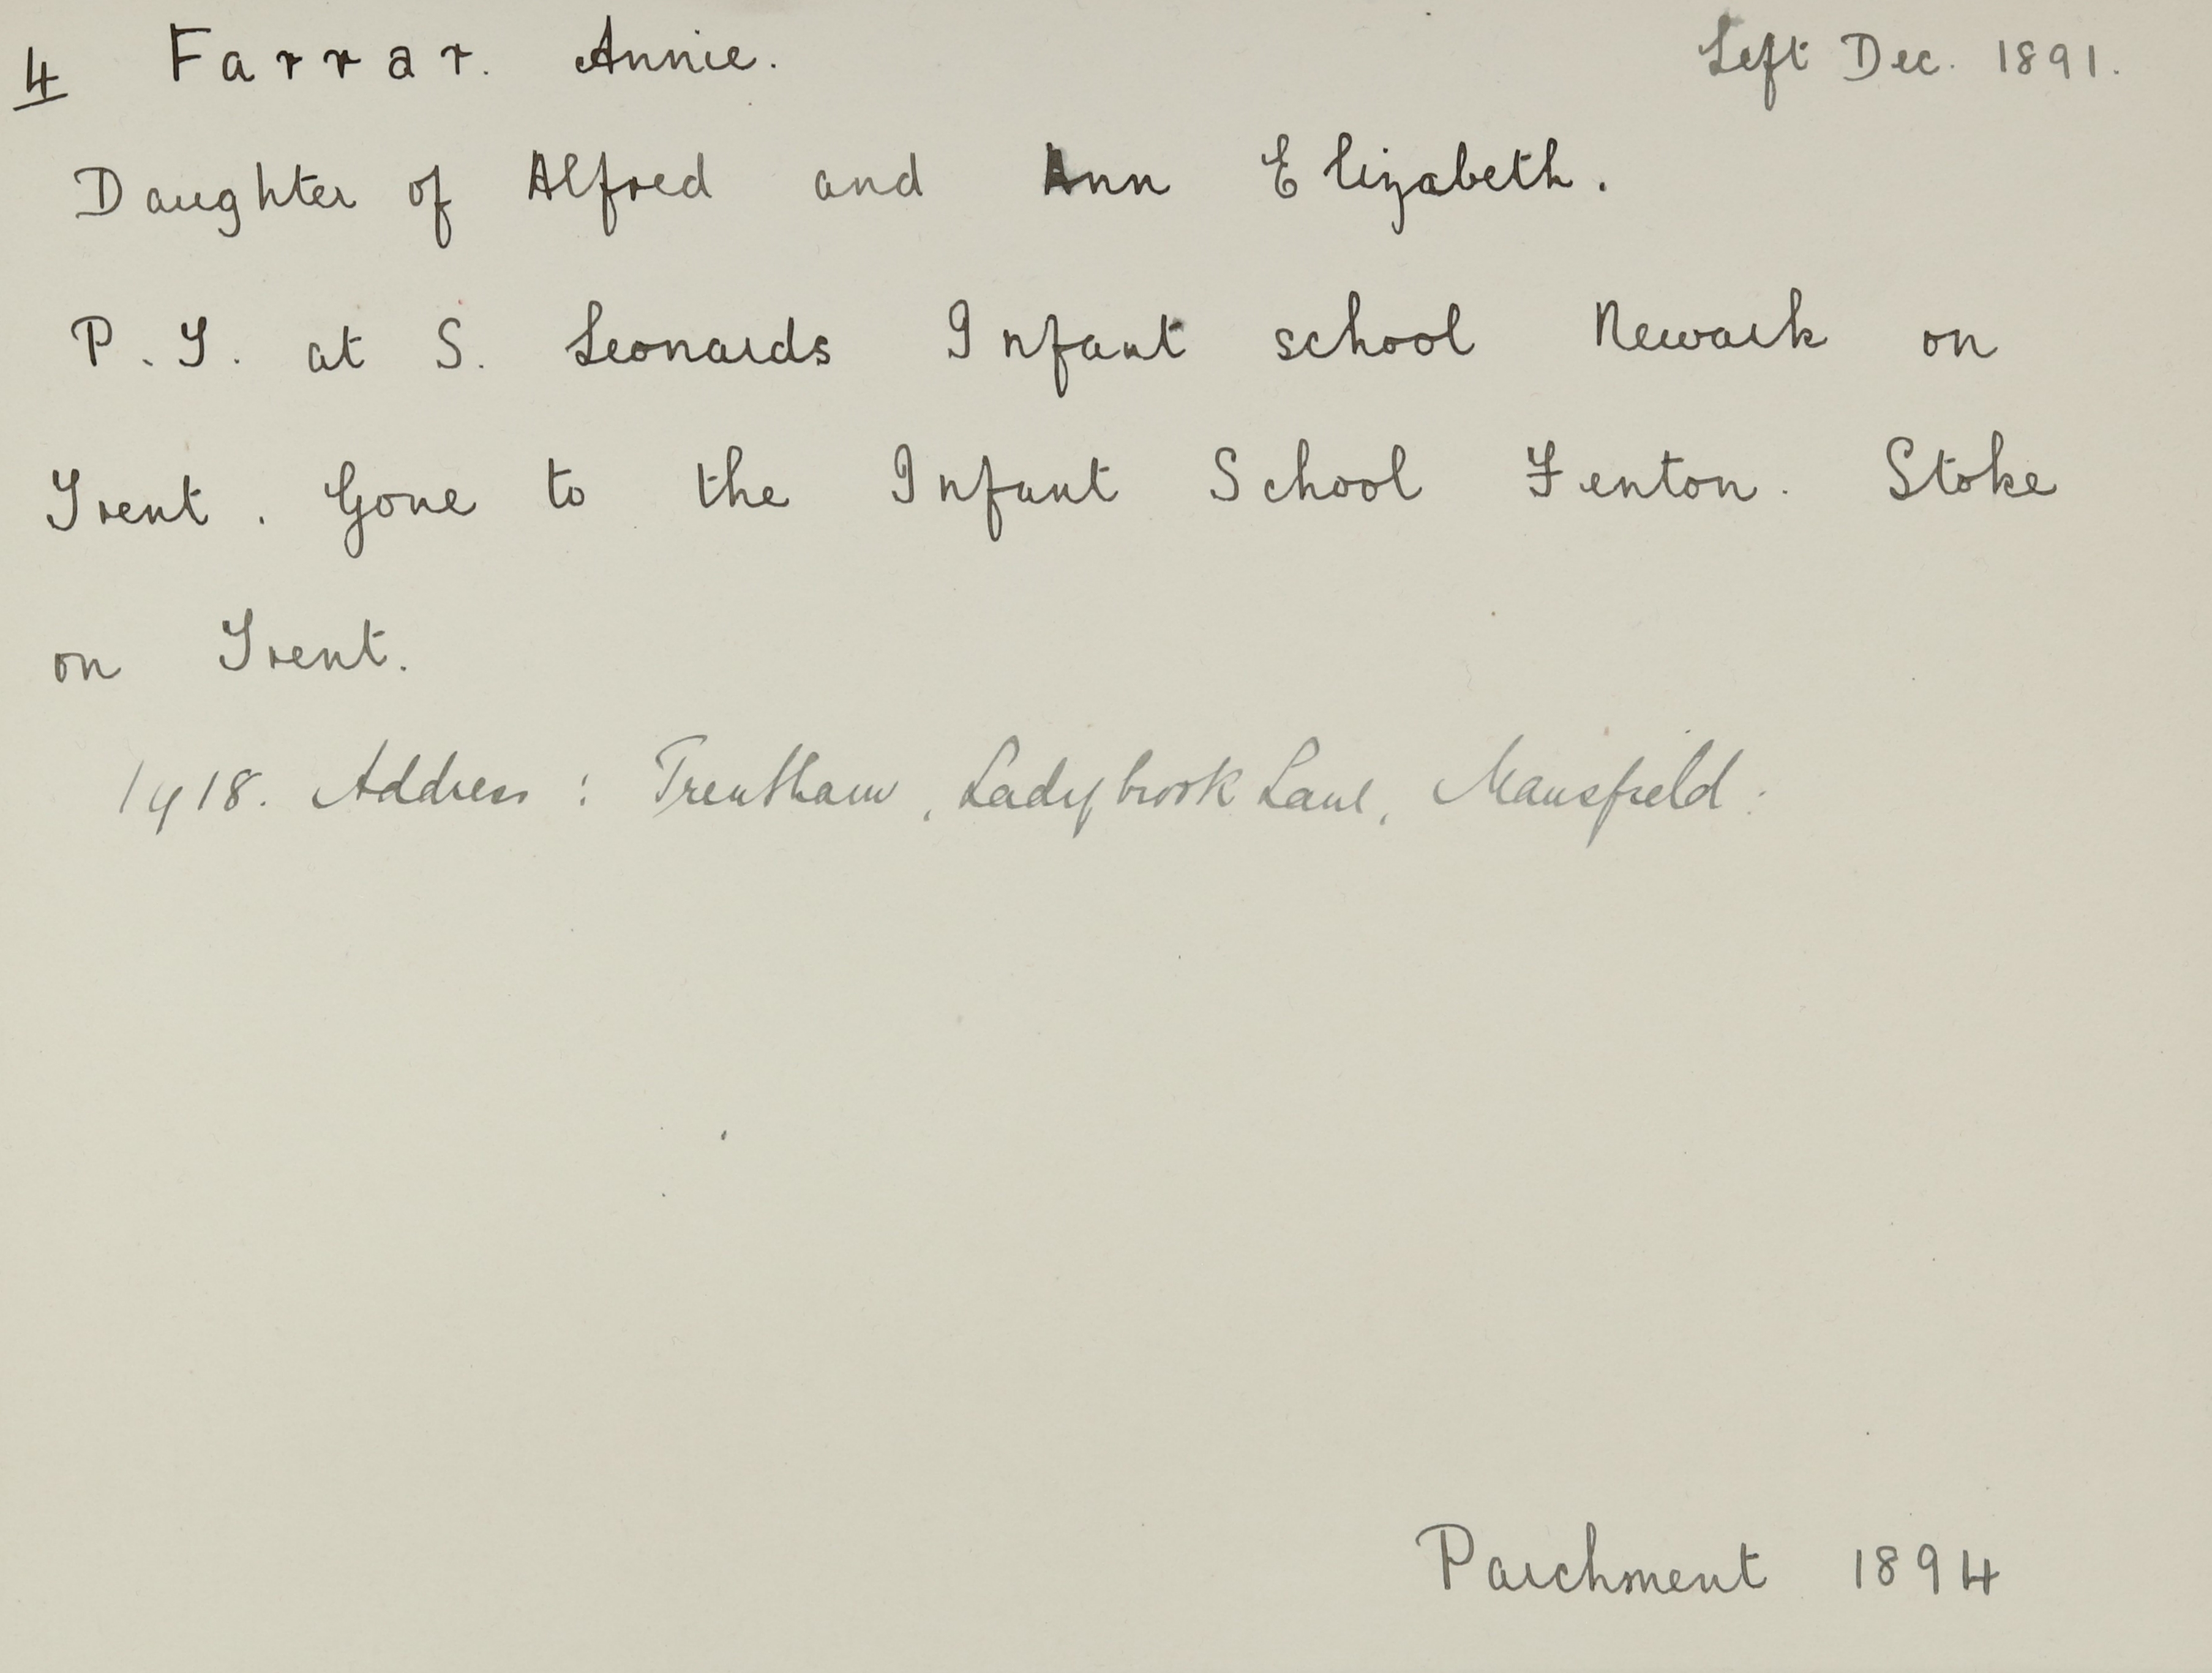 4 Farrar. Annie. Left Dec. 1891.
Daughter of Alfred and Ann Elizabeth.
P. T. at S. Leonards Infant school Newark on
Trent. Gone to the Infant School Fenton. Stoke
on Trent.
1918. Address: Trentham, Ladybrook Lane, Mansfield.
Parchment 1894